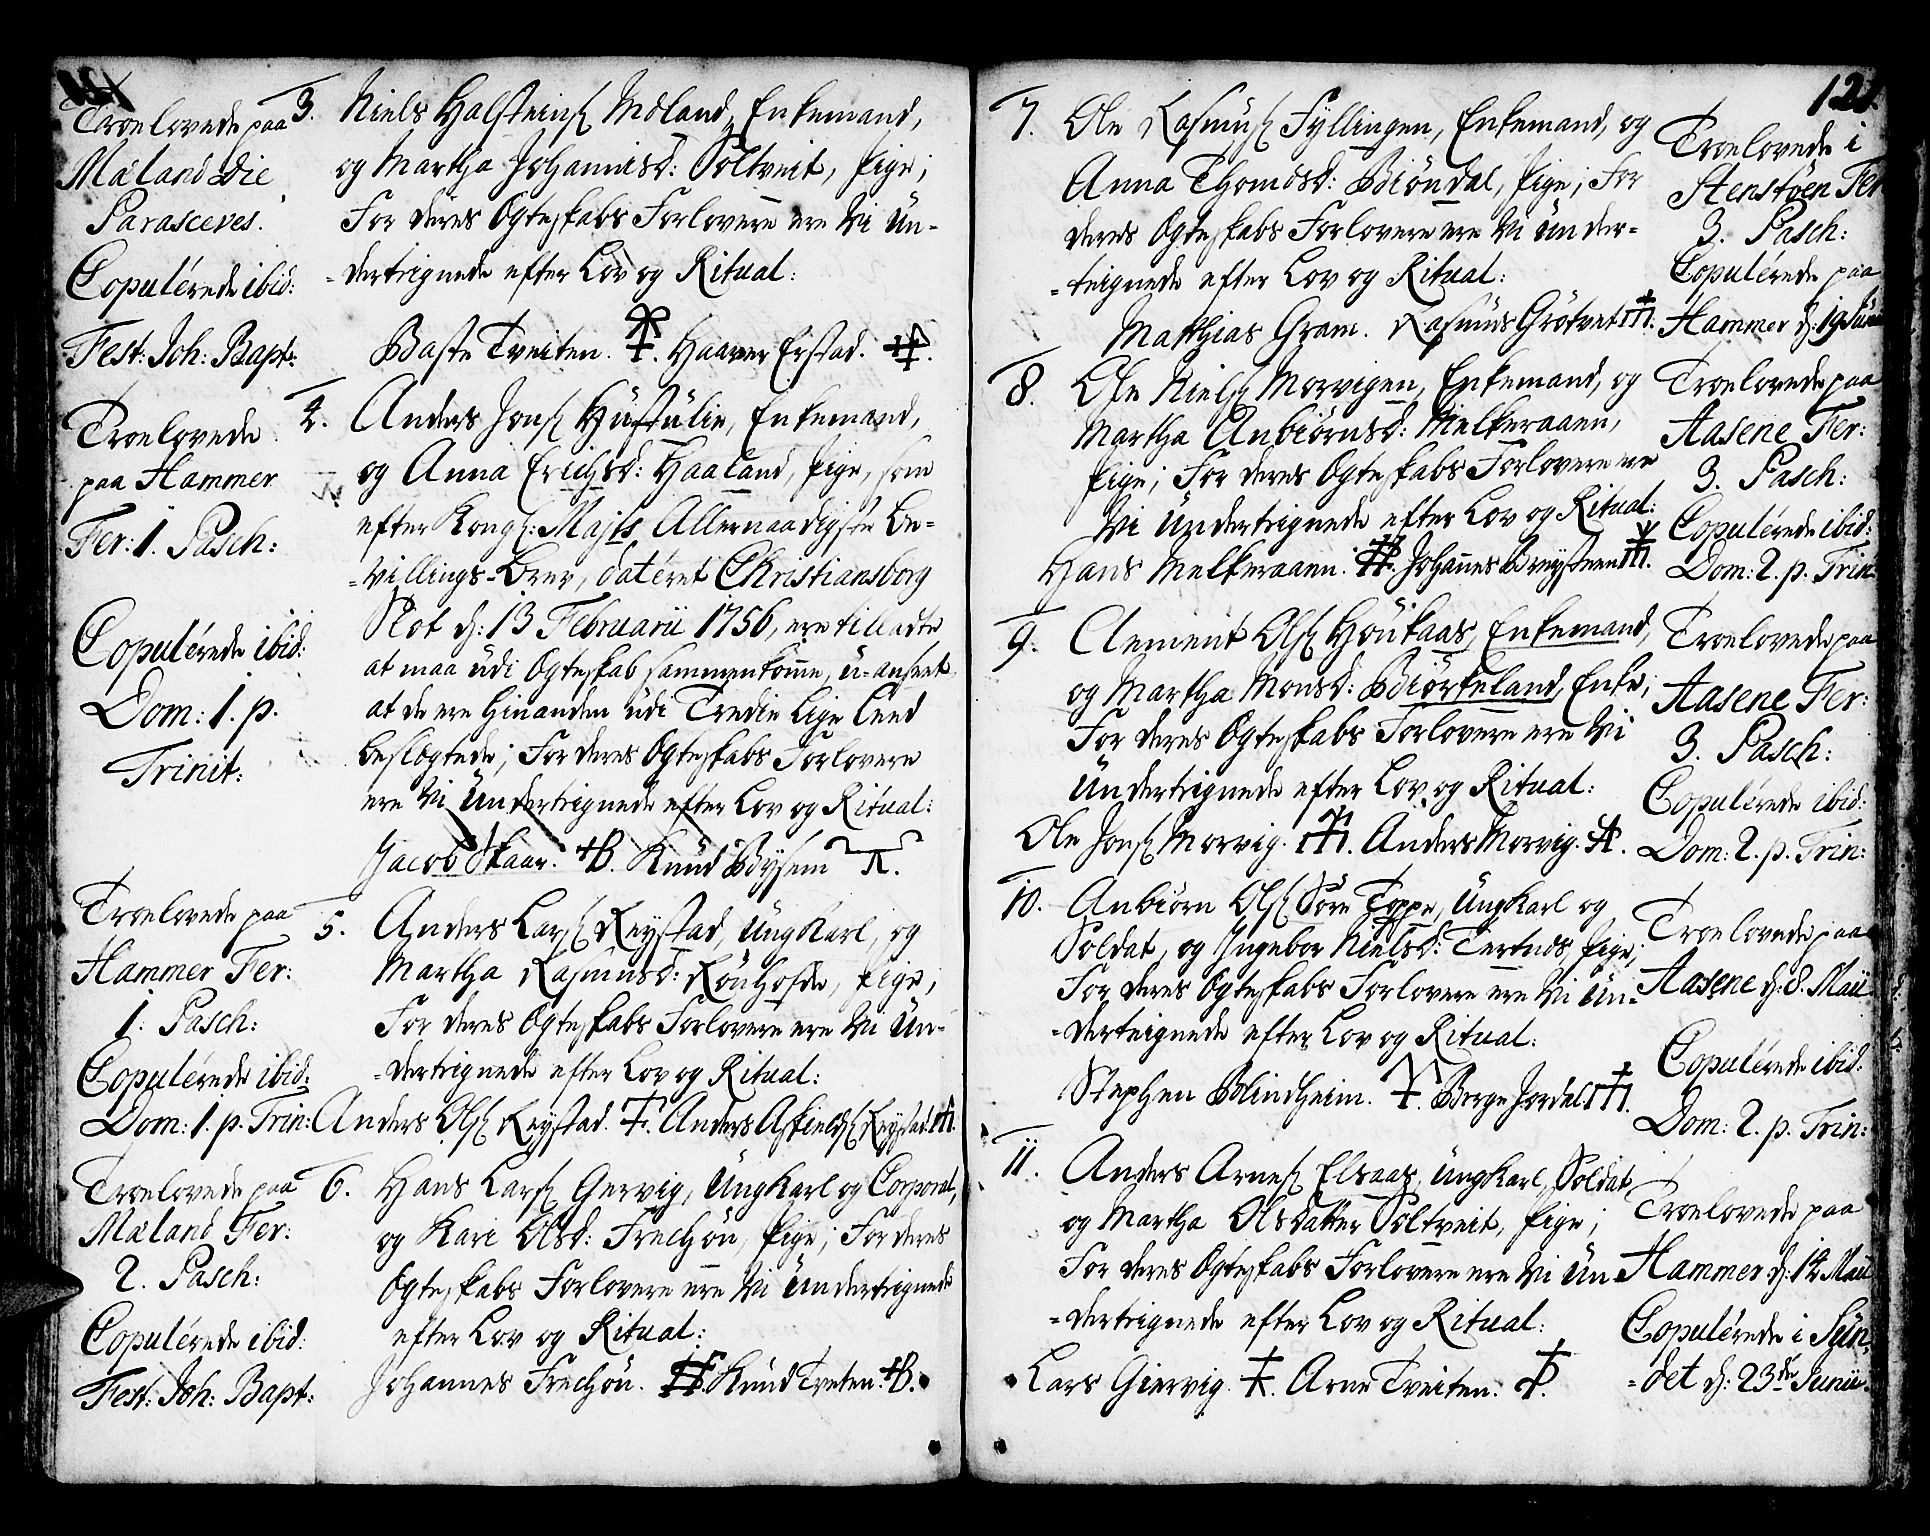 Troelovede paa
Mæland Die
Parasceves.
Copulérede ibid:
Fest: Joh: Bapt:
3. Niels Halsteins. Moland, Enkemand,
og Martha Johannisd: Soltveit, Pige;
For deres Ægteskabs Forlovere ere Vi Un-
-dertegnede efter Lov og Ritual:
Baste Tveiten. Haaver Erstad.
Troelovede
paa Hammer
Fer: 1. Pasch:
Copulérede ibid:
Dom: 1. p.
Trinit:
4. Anders Jons. Hüstülie, Enkemand,
og Anna Erichsd: Haaland, Pige, som
efter Kongl: Majts Allernaadigste Be-
-villings-Brev, datéret Christiansborg
Slot d: 13 Februarii 1756, ere tilladte
at maa udi Ægteskab sammenkomme, u-anseet
at de ere hinanden udi Tredie Lige Leed
beslægtede; For deres Ægteskabs Forlovere
ere Vi Undertegnede efter Lov og Ritual:
Jacob Skaar. B. Knud Bÿsem
Troelovede paa
Hammer Fer:
1. Pasch:
Copulérede ibid:
Dom: 1. p. Trin:
5. Anders Lars. Reystad, Ungkarl, og
Martha Rasmusd: Rönhofde, Pige,
For deres Ægteskabs Forlovere ere Vi Un-
-dertegnede efter Lov og Ritual:
Anders Ols. Reystad. Anders Askields. Reystad.
Troelovede paa
Mæland Fer:
2. Pasch:
Copulérede ibid:
Fest: Joh: Bapt:
6. Hans Lars. Gervig, Ungkarl og Corporal,
og Kari Olsd: Frechou, Pige; For deres
Ægteskabs Forlovere ere Vi Undertegnede
efter Lov og Ritual:
Johannes Frechou. Knud Tveten. B.
121.
7. Ole Rasmus. Fyllingen, Enkemand, og
Anna Thomasd: Biöndal, Pige; For
deres Ægteskabs Forlovere ere Vi Under-
-tegnede efter Lov og Ritual:
Matthias Gram. Rasmus Grötvet
Troelovede i
Stenstöen Fer
3. Pasch:
Copulérede paa
Hammer d: 19 Juni
8. Ole Niels. Morvigen, Enkemand, og
Martha Anbiörnsd: Melkeraaen,
Pige; For deres Ægteskabs Forlovere ere
Vi Undertegnede efter Lov og Ritual:
Hans Melkeraaen. Johannes Breysteen
Troelovede paa
Aasene Fer:
3. Pasch:
Copulérede ibid:
Dom: 2. p. Trin
9. Clement Ols. Höukaas, Enkemand,
og Martha Monsd: Biörkeland, Enke;
For deres Ægteskabs Forlovere ere Vi
Undertegnede efter Lov og Ritual:
Ole Jons. Morvig. Anders Morvig.
Troelovede paa
Aasene Fer:
3. Pasch:
Copulérede ibid:
Dom: 2. p. Trin:
10. Anbiörn Ols. Söre Toppe, Ungkarl og
Soldat, og Ingebor Nielsd: Tertnes, Pige;
For deres Ægteskabs Forlovere ere Vi Un-
-dertegnede efter Lov og Ritual:
Stephen Blindheim. Berge Jordal
Troelovede paa
Aasene d: 8. Maii
Copulérede ibid:
Dom: 2. p. Trin:
11. Anders Arnes. Elsaas, Ungkarl, Soldat
og Martha Olsdatter Soltveit, Pige;
For deres Ægteskabs Forlovere ere Vi Un
-dertegnede efter Lov og Ritual:
Lars Giervig. Arne Tveiten.
Troelovede paa
Hammer d: 12 Maii
Copulérede i Sün-
-det d: 23de Junii.